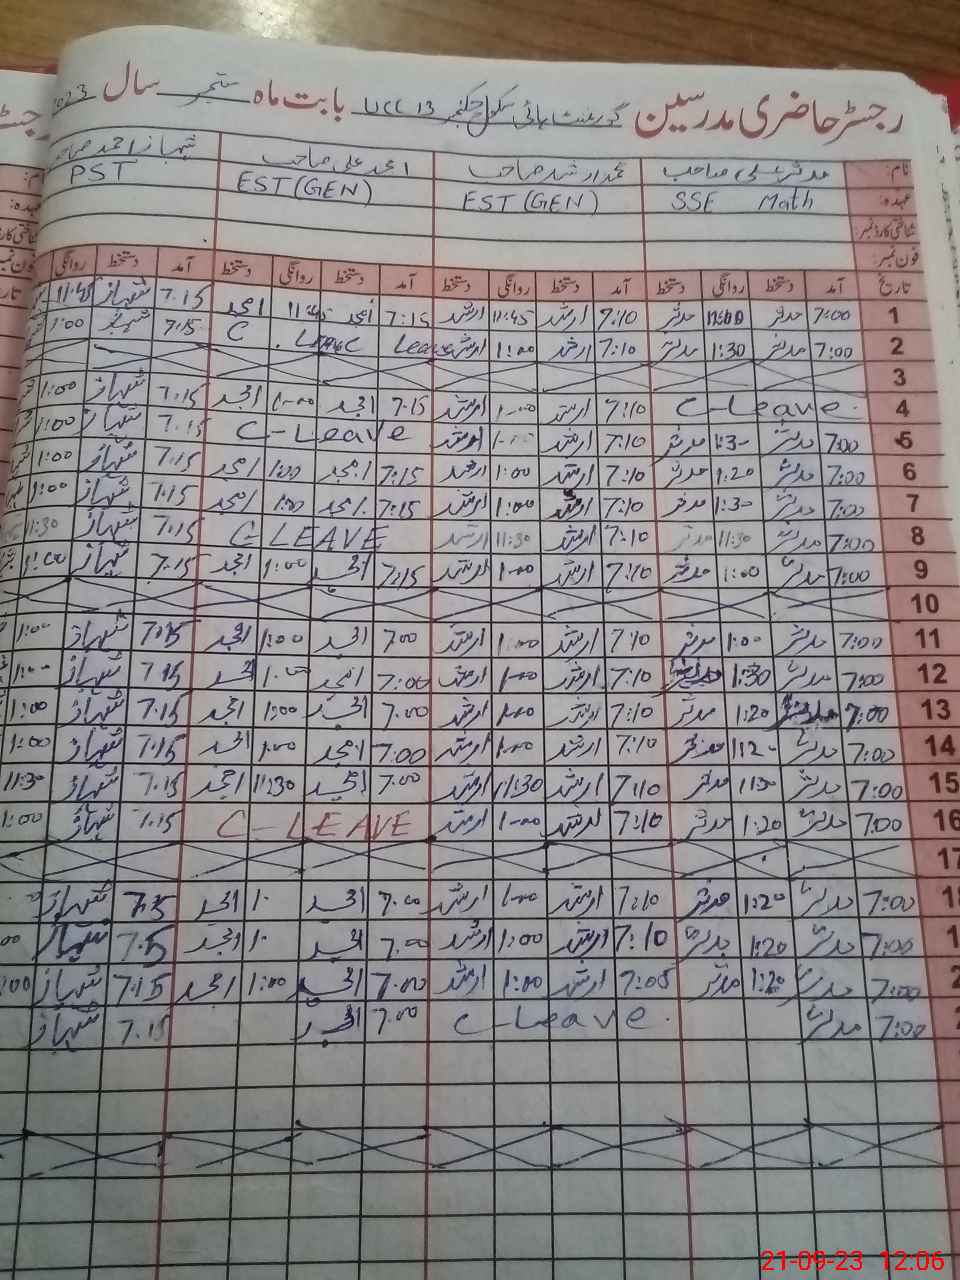 رجسٹر حاضری مدرسین گورنمنٹ ہائی سکول چک نمبر 13 UCC بابت ماہ ستمبر سال 2023
نام: مدثر علی صاحب محمد ارشد صاحب امجد علی صاحب شہباز احمد صاحب
عہدہ: SSE Math EST (GEN) EST (GEN) PST
شناختی کارڈ نمبر:
فون نمبر:
تاریخ آمد دستخط روانگی دستخط آمد دستخط روانگی دستخط آمد دستخط روانگی دستخط آمد دستخط روانگی
1 7:00 مدثر مدثر 7:10 ارشد 11:45 ارشد 7:15 امجد 11:45 امجد 7.15 شہباز 11:45
2 7:00 مدثر 1:30 مدثر 7:10 ارشد 1:00 ارشد Leave C 7:15 1:00
3
4 C-Leave 7:10 ارشد 1:00 ارشد 7.15 امجد 1:00 امجد 7.15 شہباز 1:00
5 7:00 مدثر 1:30 مدثر 7:10 ارشد ارشد C-Leave 7.15 شہباز 1:00
6 7:00 مدثر 1:20 مدثر 7:10 ارشد 1:00 ارشد 7:15 امجد 1:00 امجد 7.15 شہباز 1:00
7 7:00 مدثر 1:30 مدثر 7:10 ارشد 1:00 ارشد 7:15 امجد 1:00 امجد 7.15 شہباز 1:00
8 7:00 مدثر 11:30 مدثر 7:10 ارشد 11:30 ارشد C-LEAVE 7.15 شہباز 11:30
9 7:00 مدثر 1:00 مدثر 7:10 ارشد 1:00 ارشد 7:15 امجد 1:00 امجد 7.15 شہباز 1:00
10
11 7:00 مدثر 1:00 مدثر 7:10 ارشد 1:00 ارشد 7:00 امجد 1:00 امجد 7.15 شہباز 1:00
12 7:00 مدثر 1:30 7:10 ارشد 1:00 ارشد 7:00 امجد 1:00 امجد 7.15 شہباز 1:00
13 7:00 مدثر 1:20 مدثر 7:10 ارشد 1:00 ارشد 7:00 امجد 1:00 امجد 7.15 شہباز 1:00
14 7:00 مدثر 1:20 مدثر 7:10 ارشد 1:00 ارشد 7:00 امجد 1:00 امجد 7.15 شہباز 1:00
15 7:00 مدثر 11:30 مدثر 7:10 ارشد 11:30 ارشد 7:00 امجد 11:30 امجد 7.15 شہباز 11:30
16 7:00 مدثر 1:20 مدثر 7:10 ارشد 1:00 ارشد C-LEAVE 7.15 شہباز 1:00
17
7:00 مدثر 1:20 مدثر 7:10 ارشد 1:00 ارشد 7:00 امجد امجد 7.15 شہباز
7:00 مدثر 1:20 مدثر 7:10 ارشد 1:00 ارشد 7:00 امجد امجد شہباز
7:00 مدثر 1:20 مدثر 7:05 ارشد 1:00 ارشد 7:00 امجد 1:00 امجد 7.15 شہباز
7:00 مدثر C-Leave. 7:00 امجد 7.15 شہباز
21-09-23 12:06